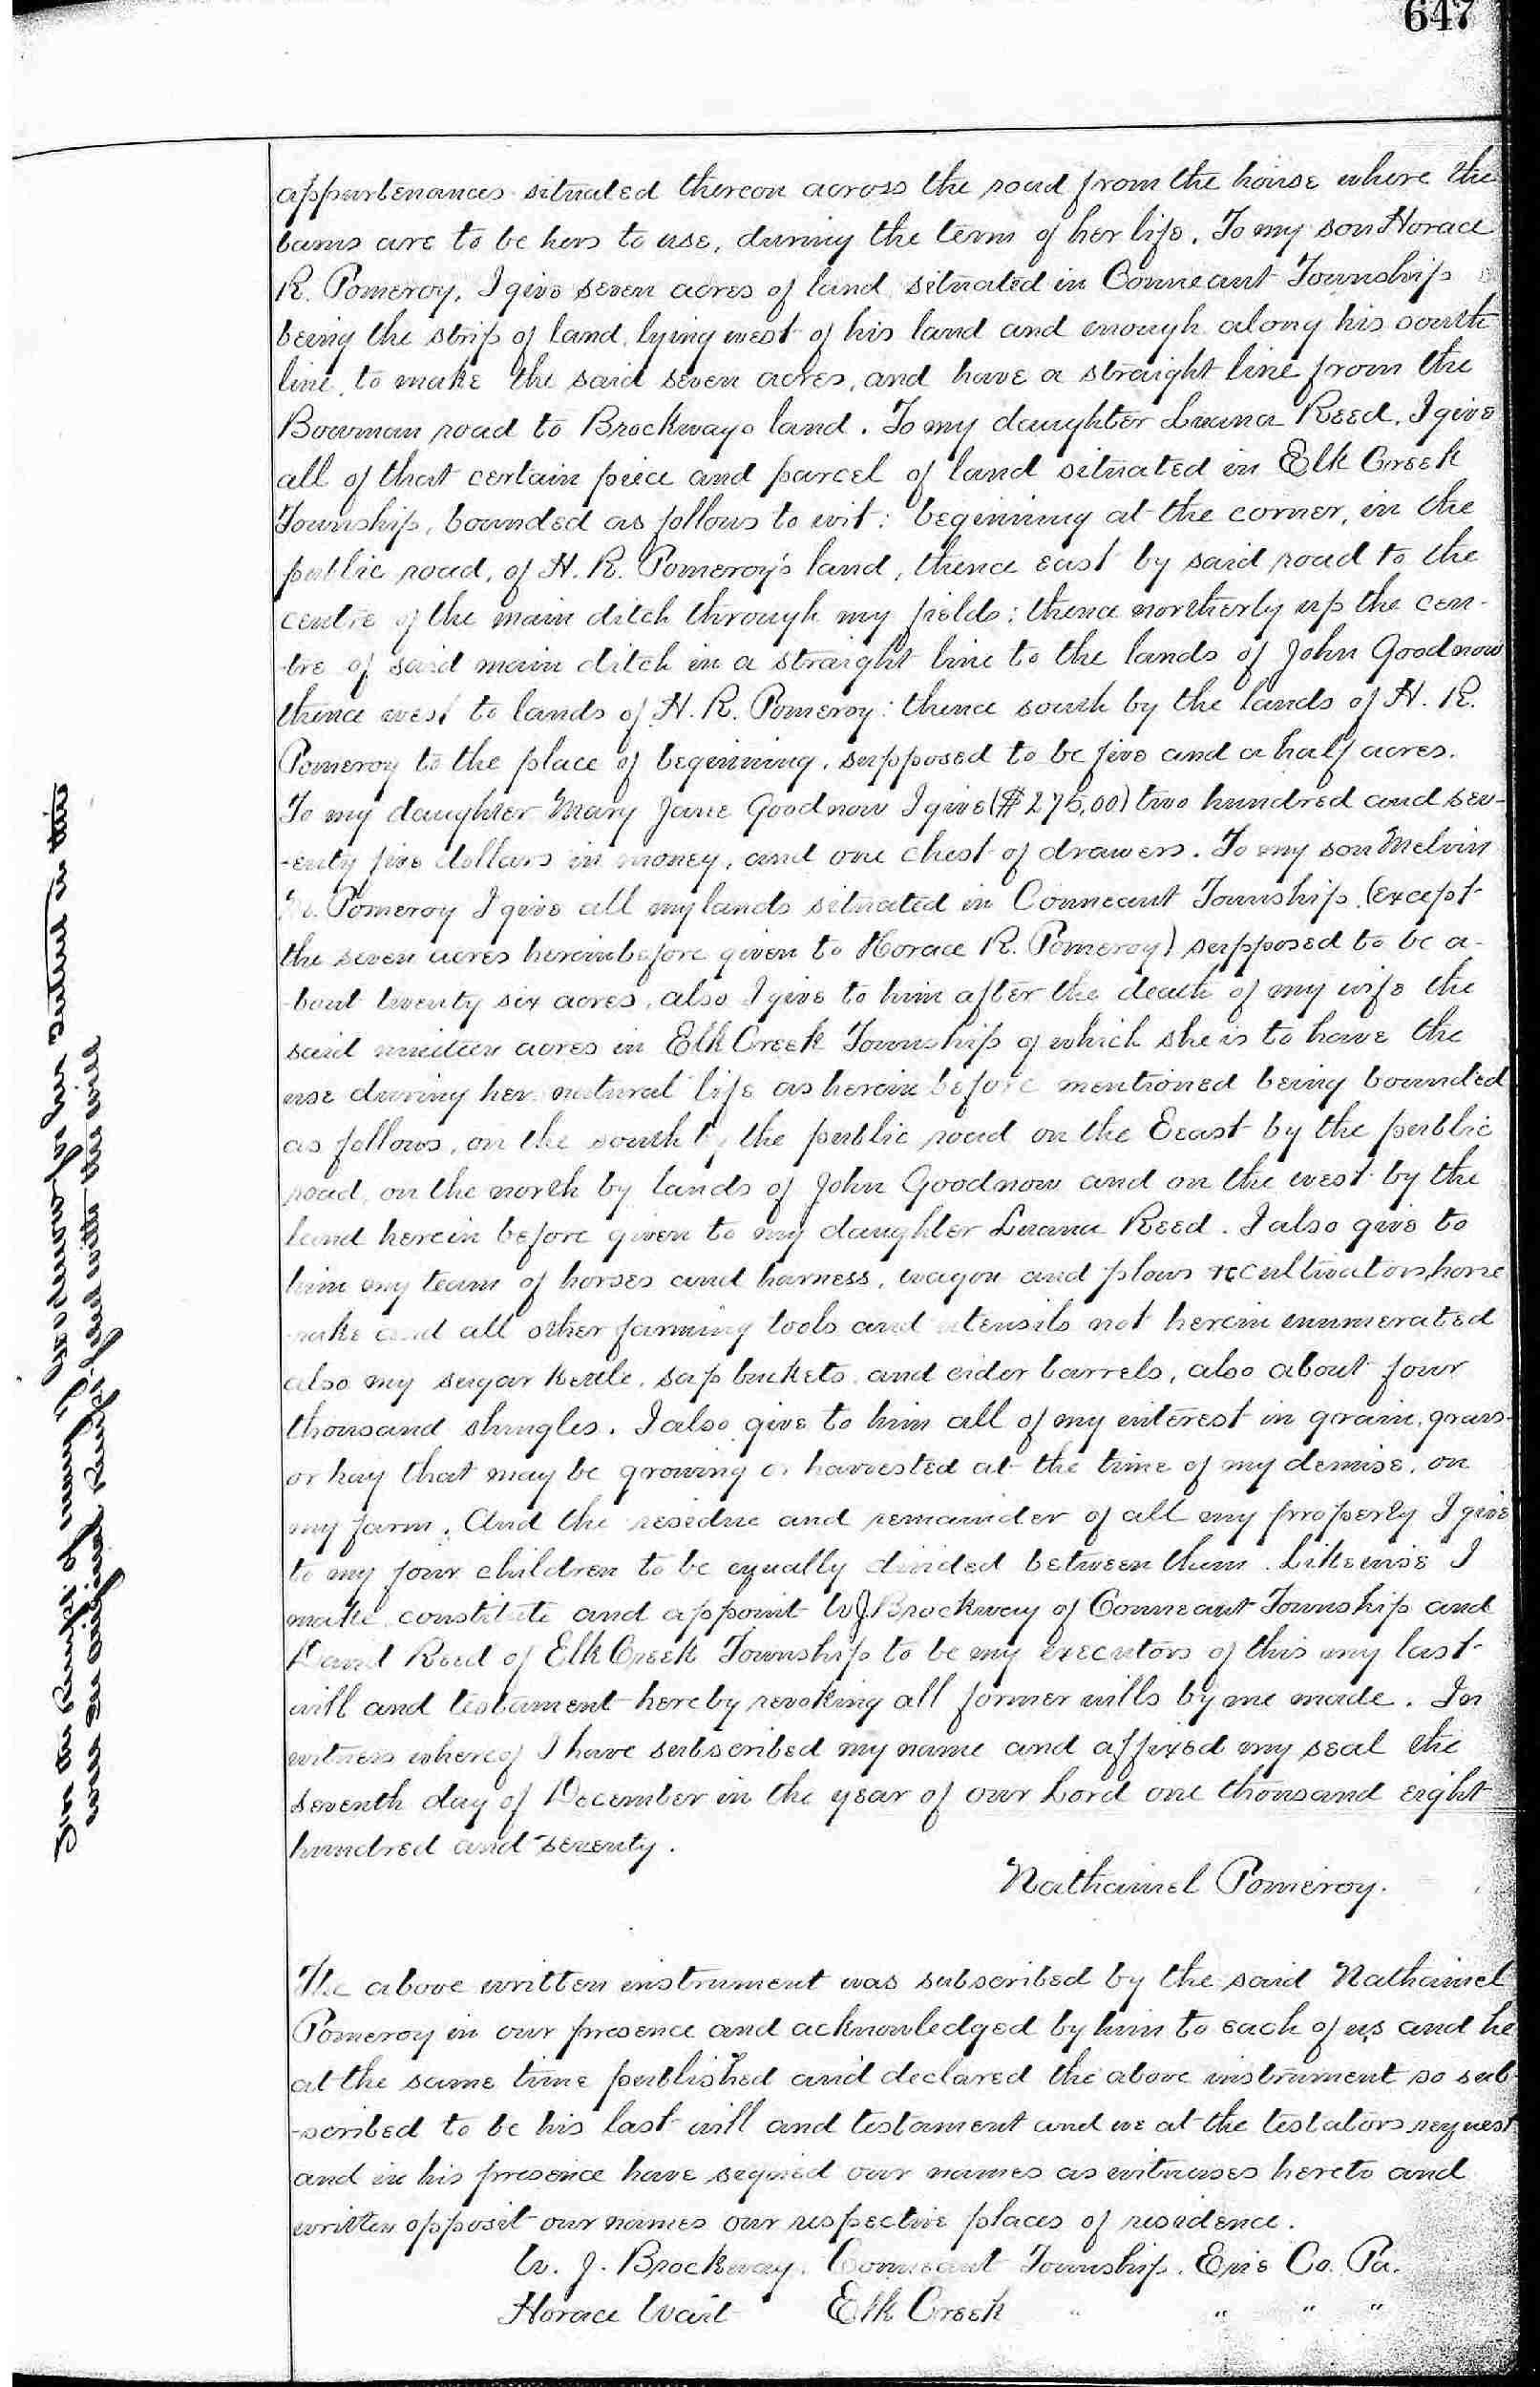 647
appurtenances situated thereon across the road from the house where the
barns are to be hers to use, during the term of her life. To my son Horace
R. Pomeroy, I give seven acres of land situated in Conneaut Township
being the strip of land, lying west of his land and enough along his south
line, to make the said seven acres, and have a straight line from the
Bowman road to Brockways land. To my daughter Luana Reed, I give
all of that certain piece and parcel of land situated in Elk Creek
Township, bounded as follows to wit: beginning at the corner, in the
public road, of H. R. Pomeroy's land, thence east by said road to the
centre of the main ditch through my fields; thence northerly up the cen-
-tre of said main ditch in a straight line to the lands of John Goodnow
thence west to lands of H. R. Pomeroy: thence south by the lands of H. R.
Pomeroy to the place of beginning, supposed to be five and a half acres.
To my daughter Mary Jane Goodnow I give ($275,00) two hundred and sev-
-enty five dollars in money, and one chest of drawers. To my son Melvin
Pomeroy I give all my lands situated in Conneaut Township, (except
the seven acres hereinbefore given to Horace R. Pomeroy) supposed to be a-
-bout twenty six acres, also I give to him after the death of my wife the
said nineteen acres in Elk Creek Township of which she is to have the
use during her natural life as herein before mentioned being bounded
as follows, on the south by the public road on the Eeast by the public
road, on the north by lands of John Goodnow and on the west by the
land herein before given to my daughter Luana Reed. I also give to
him my team of horses and harness, wagon and plows & cultivators, horse
rake and all other farming tools and utensils not herein enumerated
also my sugar kettle, sap buckets, and cider barrels, also about four
thousand shingles. I also give to him all of my interest in grain, grass
or hay that may be growing or harvested at the time of my demise, on
my farm. And the residue and remainder of all my property I give
to my four children to be equally divided between them. Likewise I
make constitute and appoint W J. Brockway of Conneaut Township and
David Reed of Elk Creek Township to be my executors of this my last
will and testament hereby revoking all former wills by me made. In
witness whereof I have subscribed my name and affixed my seal the
seventh day of December in the year of our Lord one thousand eight
hundred and seventy.
Nathaniel Pomeroy.
The above written instrument was subscribed by the said Nathaniel
Pomeroy in our presence and acknowledged by him to each of us and he
at the same time published and declared the above instrument so sub
-scribed to be his last will and testament and we at the testators request
and in his presence have segned our names as witnesses hereto and
written opposit our names our respective places of residence.
W. J. Brockway. Conneaut Township. Erie Co. Pa.
Horace Wait Elk Creek " " " "
For the Receipt of Mary J. Pomeroy for her interest in this
will See original Receipt filed with this will